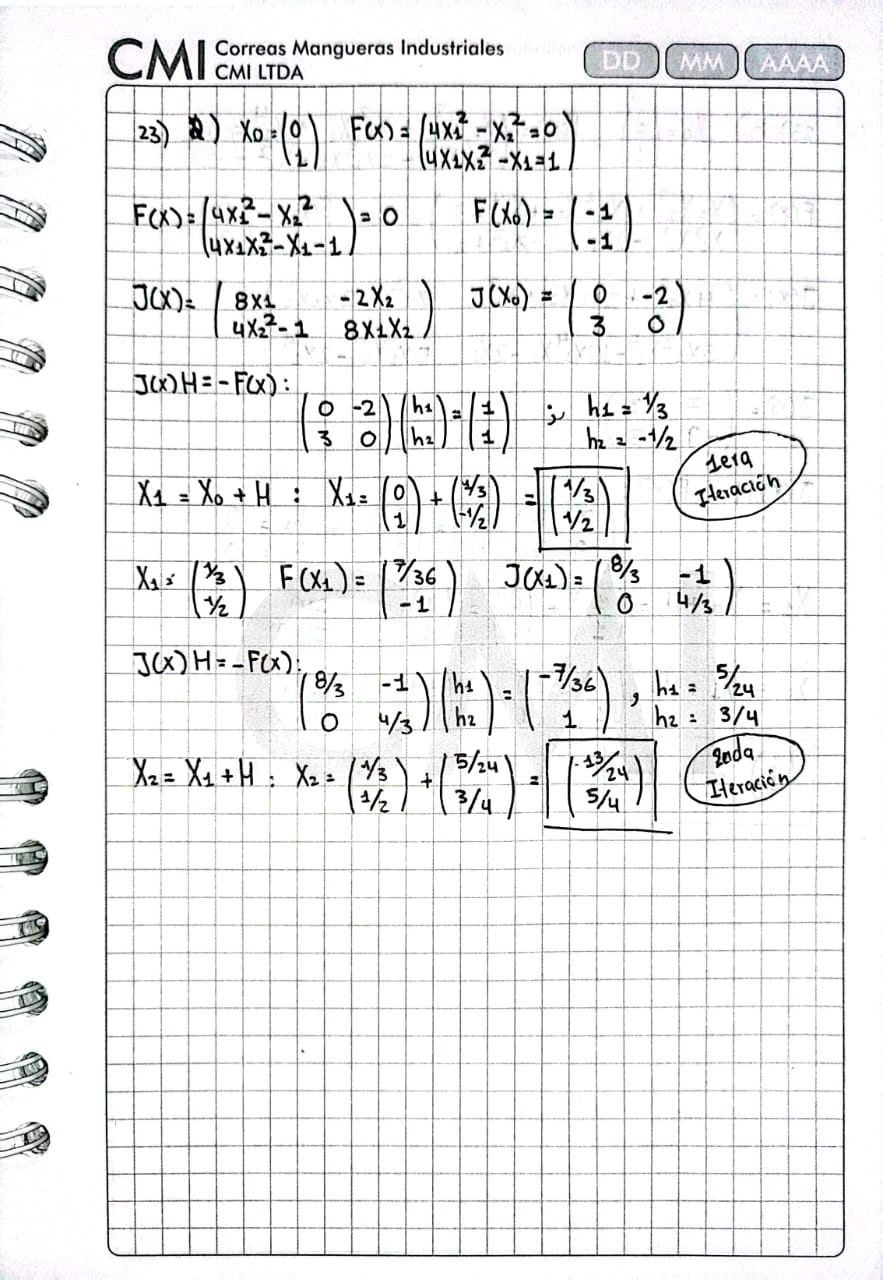 CMI Correas Mangueras Industriales
CMI LTDA
DD MM AAAA
23) a) X0 = (0 1) F(x) = (4x1² - x2² = 0 4x1x2² - x1 = 1)
F(x) = (4x1² - x2² 4x1x2² - x1 - 1) = 0 F(x0) = (-1 -1)
J(x) = (8x1 -2x2 4x2² - 1 8x1x2) J(x0) = (0 -2 3 0)
J(x)H = -F(x):
(0 -2 3 0)(h1 h2) = (1 1) ; h1 = 1/3 h2 = -1/2
X1 = X0 + H : X1 = (0 1) + (1/3 -1/2) = (1/3 1/2)
1era Iteración
X1 = (1/3 1/2) F(x1) = (7/36 -1) J(x1) = (8/3 -1 0 4/3)
J(x)H = -F(x):
(8/3 -1 0 4/3)(h1 h2) = (-7/36 1) , h1 = 5/24 h2 = 3/4
X2 = X1 + H : X2 = (1/3 1/2) + (5/24 3/4) = (13/24 5/4)
2nda Iteración
CMI